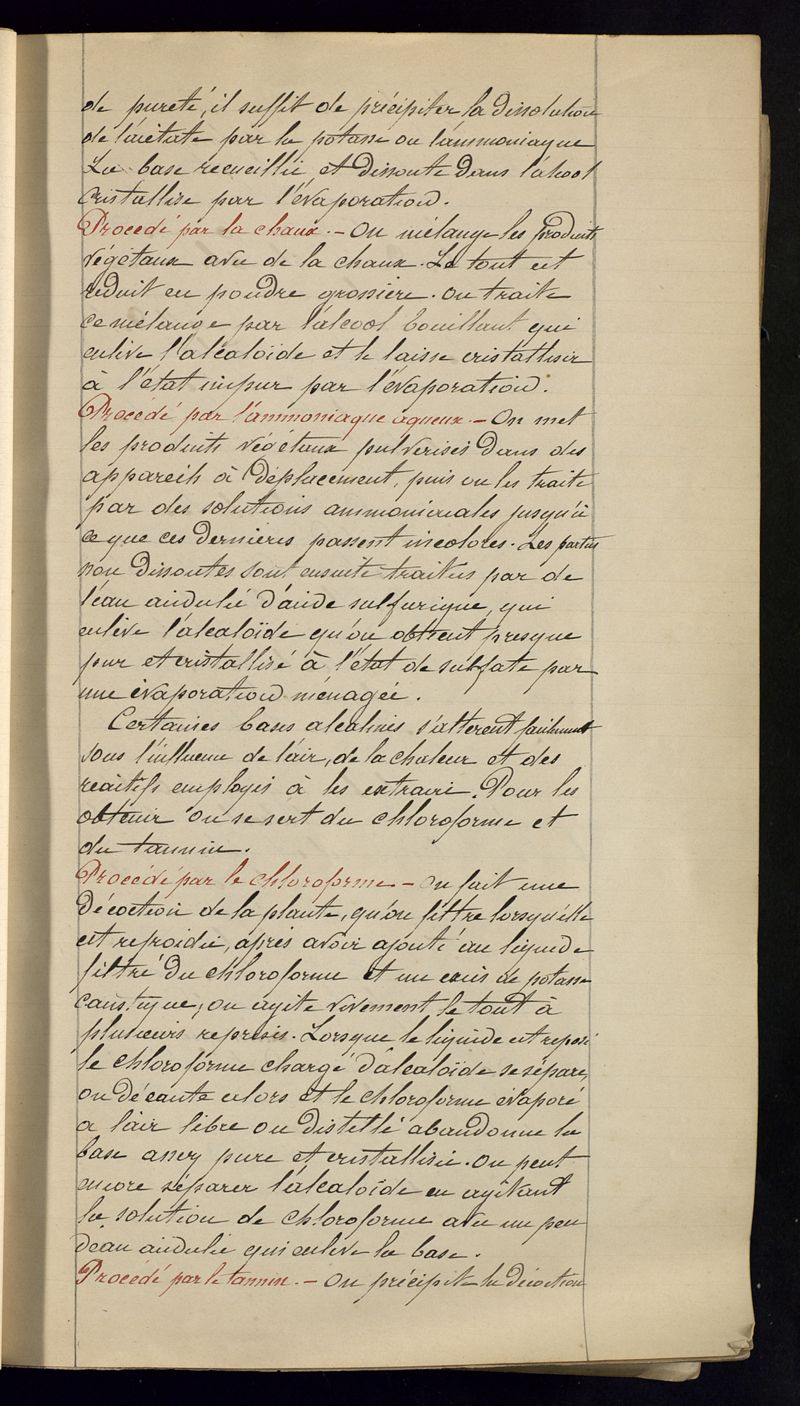 de pureté, il suffit de précipiter la dissolution
de l'acétate par la potasse ou l'ammoniaque
La base recueillie et dissoute dans l'alcool
cristallise par l'évaporation.
Procédé par la chaux. - On mélange les produits
végétaux avec de la chaux. Le tout est
réduit en poudre grossière. On traite
ce mélange par l'alcool bouillant qui
enlève l'alcaloïde et le laisse cristalliser
à l'état impur par l'évaporation.
Procédé par l'ammoniaque aqueux. - On met
les produits végétaux pulvérisés dans des
appareils à déplacement, puis on les traite
par des solutions ammoniacales jusqu'à
ce que ces dernières passent incolores. Les parties
non dissoutes sont ensuite traitées par de
l'eau acidulée d'acide sulfurique, qui
enlève l'alcaloïde qu'on obtient presque
pur et cristallisé à l'état de sulfate par
une évaporation ménagée.
Certaines bases alcalines s'altèrent facilement
sous l'influence de l'air, de la chaleur et des
réactifs employés à les extraire. Pour les
obtenir on se sert du chloroforme et
du tannin.
Procédé par le chloroforme - On fait une
décoction de la plante, qu'on filtre lorsqu'elle
est refroidie, après avoir ajouté au liquide
filtré du chloroforme et un excès de potasse
caustique, on agite vivement le tout à
plusieurs reprises. Lorsque le liquide est reposé
le chloroforme chargé d'alcaloïde se sépare,
on décante alors et le chloroforme évaporé
a l'air libre ou distillé abandonne la
base assez pure et cristallisée. On peut
encore séparer l'alcaloïde en agitant
la solution de chloroforme avec un peu
d'eau acidulée qui enlève la base.
Procédé par le tannin. - On précipite la décoction